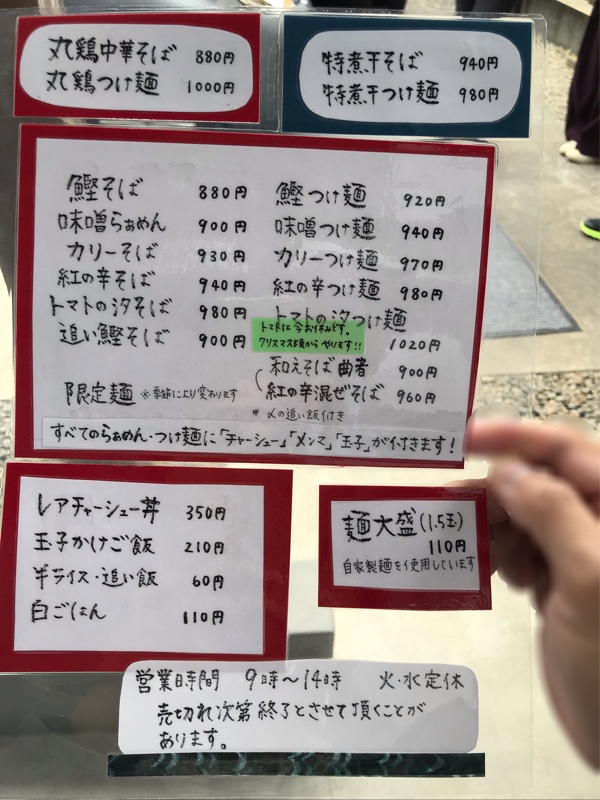 丸鶏中華そば 880円
丸鶏つけ麺 1000円
特煮干そば 940円
特煮干つけ麺 980円
鰹そば 880円
味噌らぁめん 900円
カリーそば 930円
紅の辛そば 940円
トマトの汐そば 980円
追い鰹そば 900円
限定麺 ※季節により変わります
鰹つけ麺 920円
味噌つけ麺 940円
カリーつけ麺 970円
紅の辛つけ麺 980円
トマトの汐つけ麺
1020円
トマトは今お休みです。
クリスマス頃からやります!!
和えそば 曲者 900円
紅の辛混ぜそば 960円
* 〆の追い飯付き
すべてのらぁめん・つけ麺に「チャーシュー」「メンマ」「玉子」が付きます!
レアチャーシュー丼 350円
玉子かけご飯 210円
半ライス・追い飯 60円
白ごはん 110円
麺大盛(1.5玉)
110円
自家製麺を使用しています
営業時間 9時〜14時 火・水定休
売切れ次第終了とさせて頂くことが
あります。